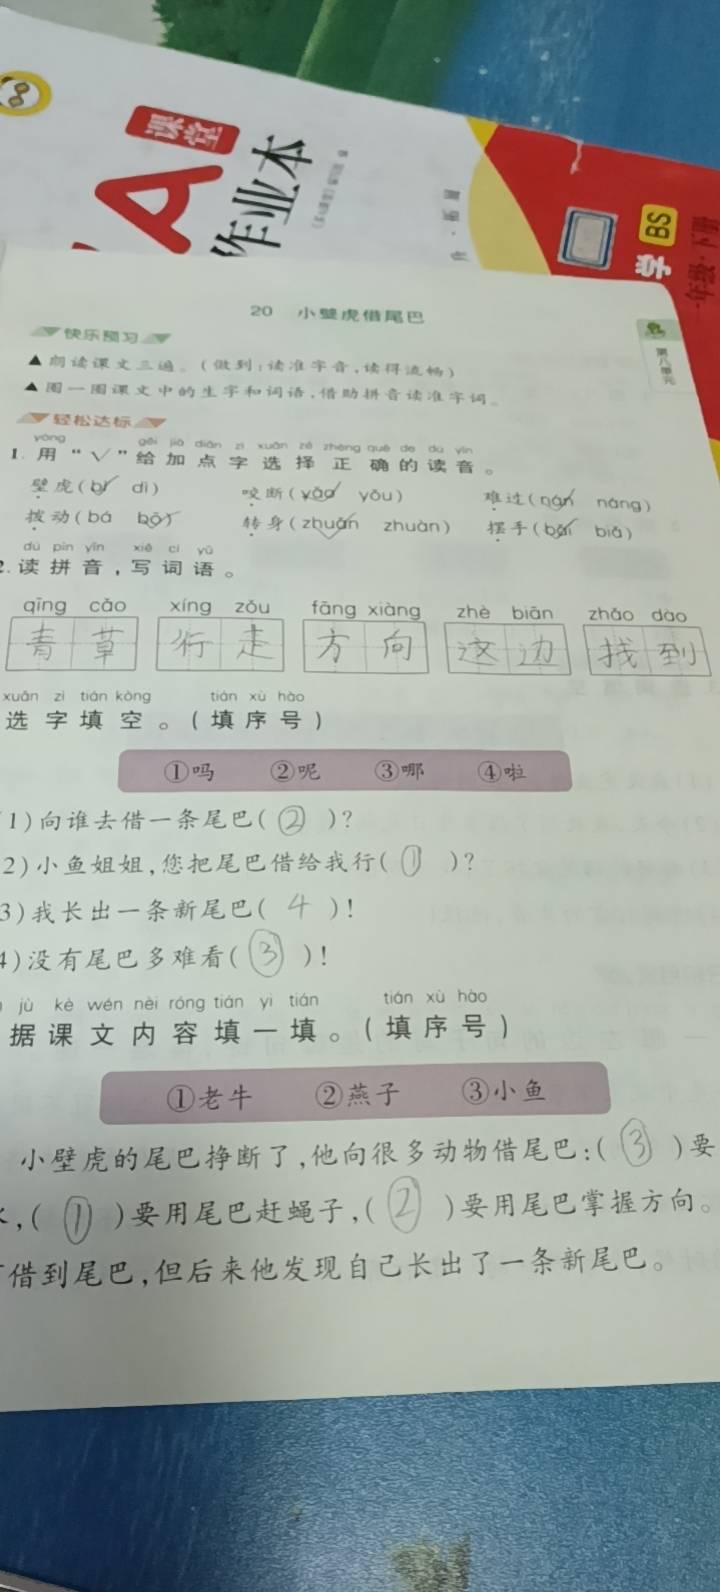 课堂
A
作业本
BS
学
一年级·下册
20 小壁虎借尾巴
第八单元
快乐预习
▲朗读课文三遍。(做到:读准字音,读得流畅)
▲圈一圈课文中的生字和词语,借助拼音读准字词。
轻松达标
yòng gěi jiā diǎn zì xuǎn zé zhèng què de dú yīn
1.用“√”给加点字选择正确的读音。
壁虎(bì dì) 咬断(yǎo yǒu) 难过(nán náng)
拨动(bá bō) 转身(zhuǎn zhuàn) 摆手(bǎi biǎ)
dú pīn yīn xiě cí yǔ
2.读拼音,写词语。
qīng cǎo xíng zǒu fāng xiàng zhè biān zhǎo dào
青草 行走 方向 这边 找到
xuǎn zì tián kòng tián xù hào
选字填空。(填序号)
①吗 ②呢 ③哪 ④啦
1)向谁去借一条尾巴(②)?
2)小鱼姐姐,您把尾巴借给我行(①)?
3)我长出一条新尾巴(4)!
4)没有尾巴多难看(③)!
jù kè wén nèi róng tián yi tián tián xù hào
据课文内容填一填。(填序号)
①老牛 ②燕子 ③小鱼
小壁虎的尾巴挣断了,他向很多动物借尾巴:(③)要
,(①)要用尾巴赶蝇子,(②)要用尾巴掌握方向。
借到尾巴,但后来他发现自己长出了一条新尾巴。